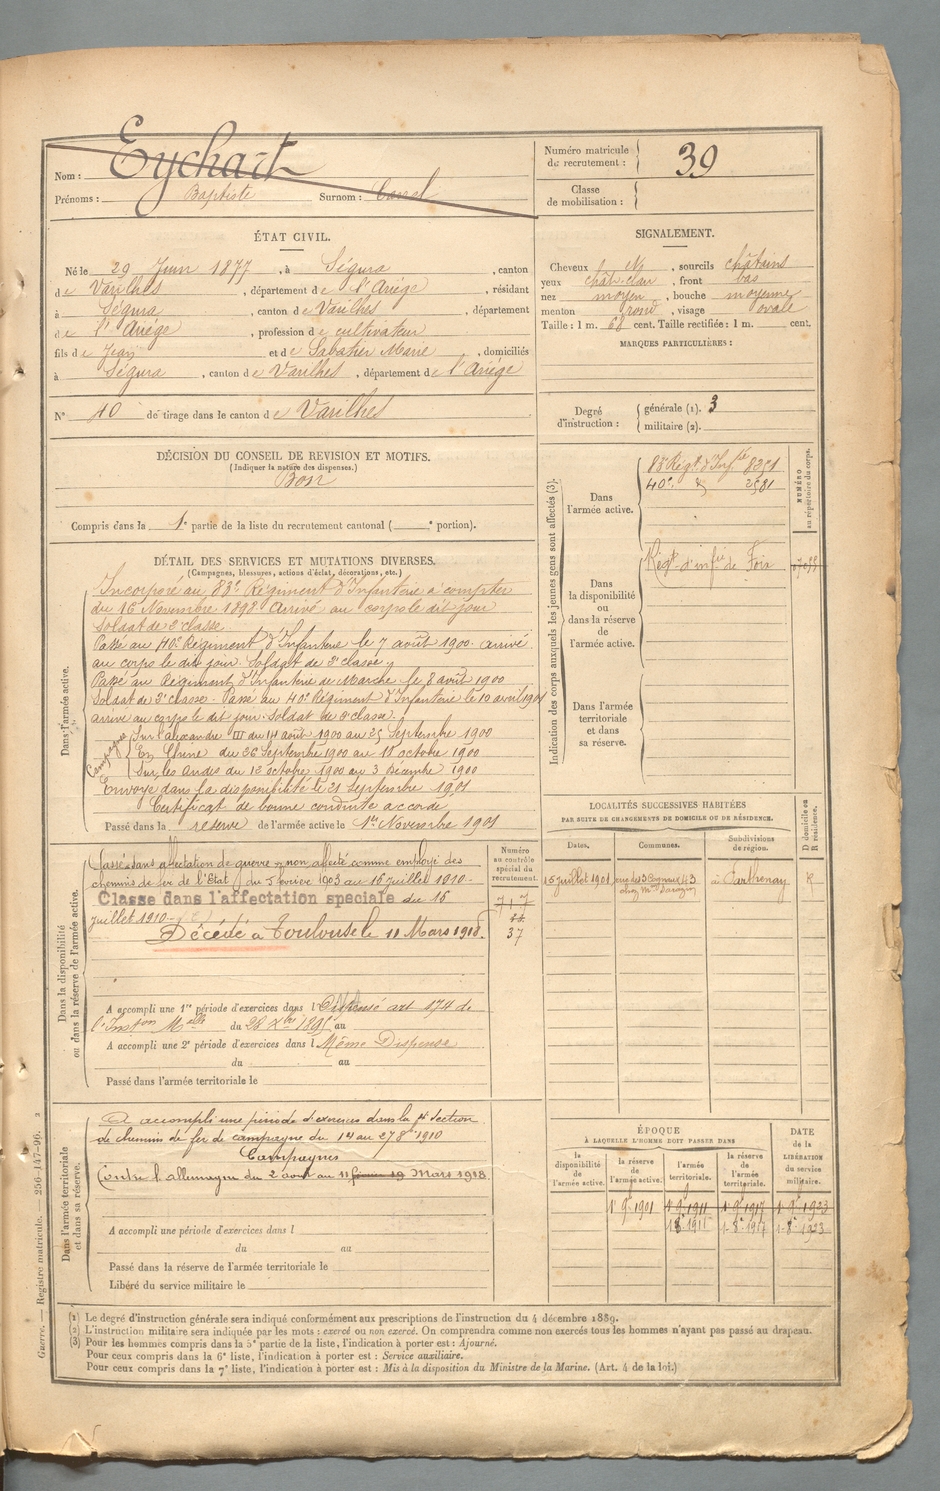 Nom : Eychart
Prénoms : Baptiste Surnom :
Numéro matricule de recrutement : 39
Classe de mobilisation :
ÉTAT CIVIL.
Né le 29 Juin 1877, à Ségura, canton
de Varilhes, département de l'Ariége, résidant
à Ségura, canton de Varilhes, département
de l'Ariége, profession de cultivateur
fils de Jean et de Sabatier Marie, domiciliés
à Ségura, canton de Varilhes, département de l'Ariége
N° 10 de tirage dans le canton de Varilhes
SIGNALEMENT.
Cheveux , sourcils châtains
yeux chât. clair, front bas
nez moyen, bouche moyenne
menton rond, visage ovale
Taille : 1 m. 68 cent. Taille rectifiée : 1 m. cent.
MARQUES PARTICULIÈRES :
Degré d'instruction : générale (1). 3
militaire (2).
DÉCISION DU CONSEIL DE REVISION ET MOTIFS.
(Indiquer la nature des dispenses.)
Bon
Compris dans la 1e partie de la liste du recrutement cantonal ( e portion).
DÉTAIL DES SERVICES ET MUTATIONS DIVERSES.
(Campagnes, blessures, actions d'éclat, décorations, etc.)
Dans l'armée active.
Incorporé au 83e Régiment d'Infanterie à compter
du 16 Novembre 1898 Arrivé au corps le dit jour
Soldat de 2e classe.
Passé au 40e Régiment d'Infanterie le 7 août 1900. arrivé
au corps le dit jour. Soldat de 2e classe
Passé au Régiment d'Infanterie de Marche le 8 août 1900
Soldat de 2e classe. Passé au 40e Régiment d'Infanterie le 10 avril 1901
arrivé au corps le dit jour. Soldat de 2e classe.
Campagnes
Sur l'alexandre III du 14 août 1900 au 25 Septembre 1900
En Chine du 26 Septembre 1900 au 11 octobre 1900
Sur les Andes du 12 octobre 1900 au 3 Décembre 1900
Envoyé dans la disponibilité le 21 Septembre 1901
Certificat de bonne conduite accordé
Passé dans la réserve de l'armée active le 1er Novembre 1901
Indication des corps auxquels les jeunes gens sont affectés (3).
NUMÉRO au répertoire du corps.
Dans l'armée active.
83e Régt. d'Infie 8351
40e 2581
Dans la disponibilité ou dans la réserve de l'armée active.
Régt. d'infie de Foix
Dans l'armée territoriale et dans sa réserve.
LOCALITÉS SUCCESSIVES HABITÉES
PAR SUITE DE CHANGEMENTS DE DOMICILE OU DE RÉSIDENCE.
Dates. Communes. Subdivisions de région. D domicile ou R résidence.
15 juillet 1901 à Parthenay R
Dans la disponibilité ou dans la réserve de l'armée active.
Numéro au contrôle spécial du recrutement.
717
37
Classé dans affectation de guerre, non affecté comme employé des
chemins de fer de l'Etat, du 5 février 1903 au 15 juillet 1910.
Classe dans l'affectation speciale du 15
juillet 1910
Décédé à Toulouse le 11 Mars 1918.
A accompli une 1re période d'exercices dans l Dispensé art 174 de
l'Inston Melle du 28 Xbre 1895 au
A accompli une 2e période d'exercices dans l Même Dispense
du au
Passé dans l'armée territoriale le
Dans l'armée territoriale et dans sa réserve.
A accompli une période d'exercices dans la 4e Section
de chemins de fer de campagne du 14 au 27 8re 1910
Campagnes
Contre l'allemagne du 2 août au 11 Mars 1918.
A accompli une période d'exercices dans l
du au
Passé dans la réserve de l'armée territoriale le
Libéré du service militaire le
ÉPOQUE
À LAQUELLE L'HOMME DOIT PASSER DANS
DATE de la LIBÉRATION du service militaire.
la disponibilité de l'armée active. la réserve de l'armée active. l'armée territoriale. la réserve de l'armée territoriale.
1. 9. 1901 1. 9. 1911 1. 9. 1917 1. 9. 1923
1. 8. 1911 1. 8. 1917 1. 8. 1923
(1) Le degré d'instruction générale sera indiqué conformément aux prescriptions de l'instruction du 4 décembre 1889.
(2) L'instruction militaire sera indiquée par les mots : exercé ou non exercé. On comprendra comme non exercés tous les hommes n'ayant pas passé au drapeau.
(3) Pour les hommes compris dans la 5e partie de la liste, l'indication à porter est : Ajourné.
Pour ceux compris dans la 6e liste, l'indication à porter est : Service auxiliaire.
Pour ceux compris dans la 7e liste, l'indication à porter est : Mis à la disposition du Ministre de la Marine. (Art. 4 de la loi.)
Guerre. — Registre matricule. — 256-147-96. 2